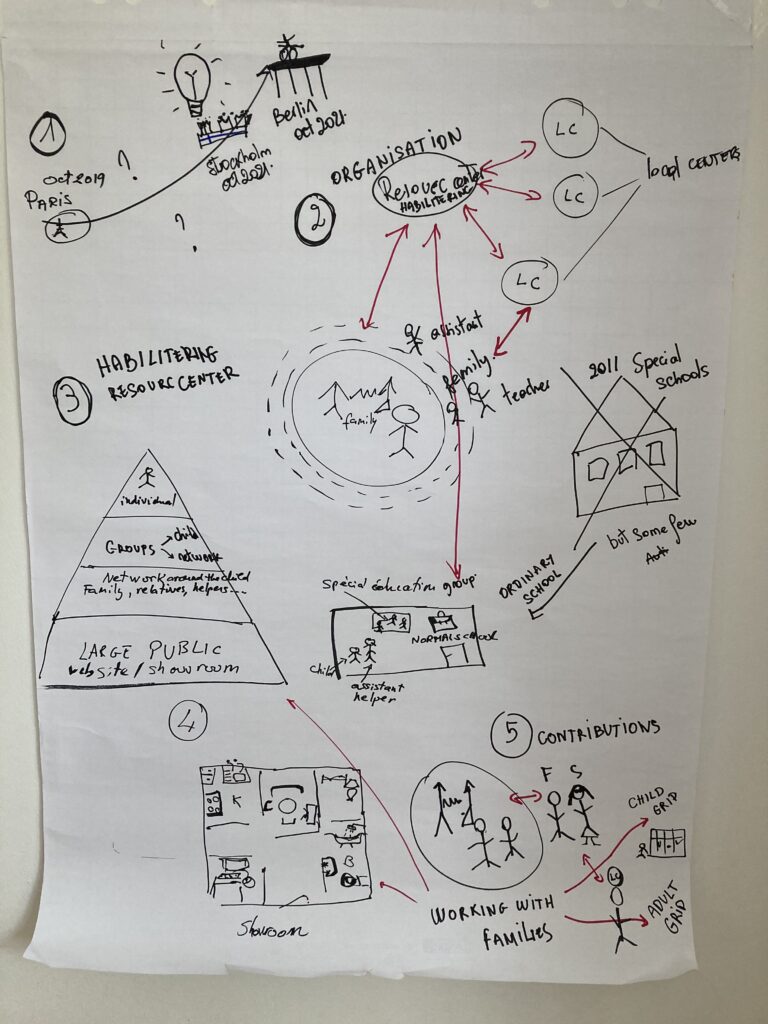 1
oct 2019
PARIS
?
?
Stockholm
oct 2021.
Berlin
oct 2021.
2
ORGANISATION
Resourc
HABILITERING
LC
LC
LC
local CENTERS
assistant
family
teacher
family
2011 Special
schools
but some few
ORDINARY
SCHOOL
special éducation group
NORMAL SCHOOL
child
assistant
helper
3
HABILITERING
RESOURC CENTER
individual
GROUPS
child
network
Network around the child
Family, relatives, helpers...
LARGE PUBLIC
website / showroom
4
K
B
Showroom
5
CONTRIBUTIONS
F S
LC
CHILD
GRID
ADULT
GRID
WORKING WITH
FAMILIES